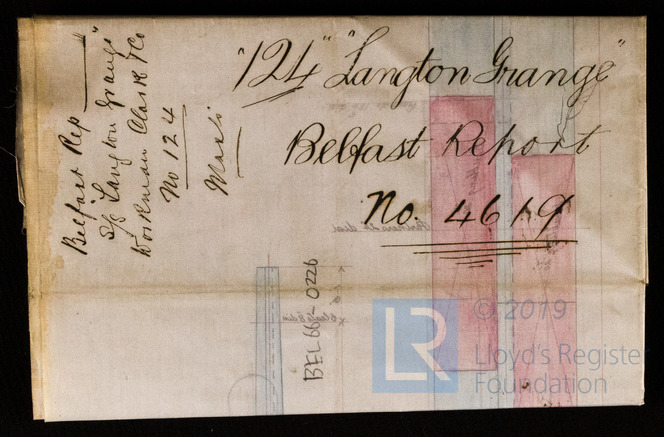 "124" "Langton Grange"
Belfast Report
No. 4619
Belfast Rep
S/S Langton Grange
Workman Clark & Co
No 124
BEL66-0226
LR
© 2019
Lloyd's Register
Foundation